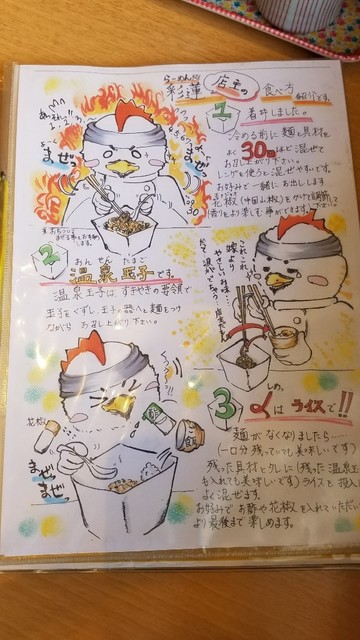 らーめん
彩蓮の店主の食べ方
紹介です。
1 着丼しました。
冷める前に麺と具材を
よく30回ほど混ぜて
お召し上がり下さい。
レンゲを使うと混ぜやすいです。
お好みで一緒にお出しします
花椒(中国山椒)をかけて
香りをより楽しむ事ができます。
まぜ
まぜ
2 温泉玉子です。
おんせん たまご
温泉玉子は、すきやきの要領で
玉子をくずし、玉子の器へと麺をつけ
ながら お召し上がり下さい。
これ、これ
嫁より
やさしいお味…
花椒
酢
花椒
まぜ
まぜ。
3 〆はライスで!!
しめ。
麺がなくなりましたら…
(一口分残っていても美味しいです)
残った具材とタレに(残った温泉玉子
も入れても美味しいです)ライスを投入
よく混ぜます。
お好みでお酢や花椒を入れていただいて
より最後まで楽しめます。